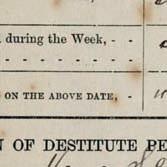 during the Week, - -
- - - - - -
ON THE ABOVE DATE, -
OF DESTITUTE